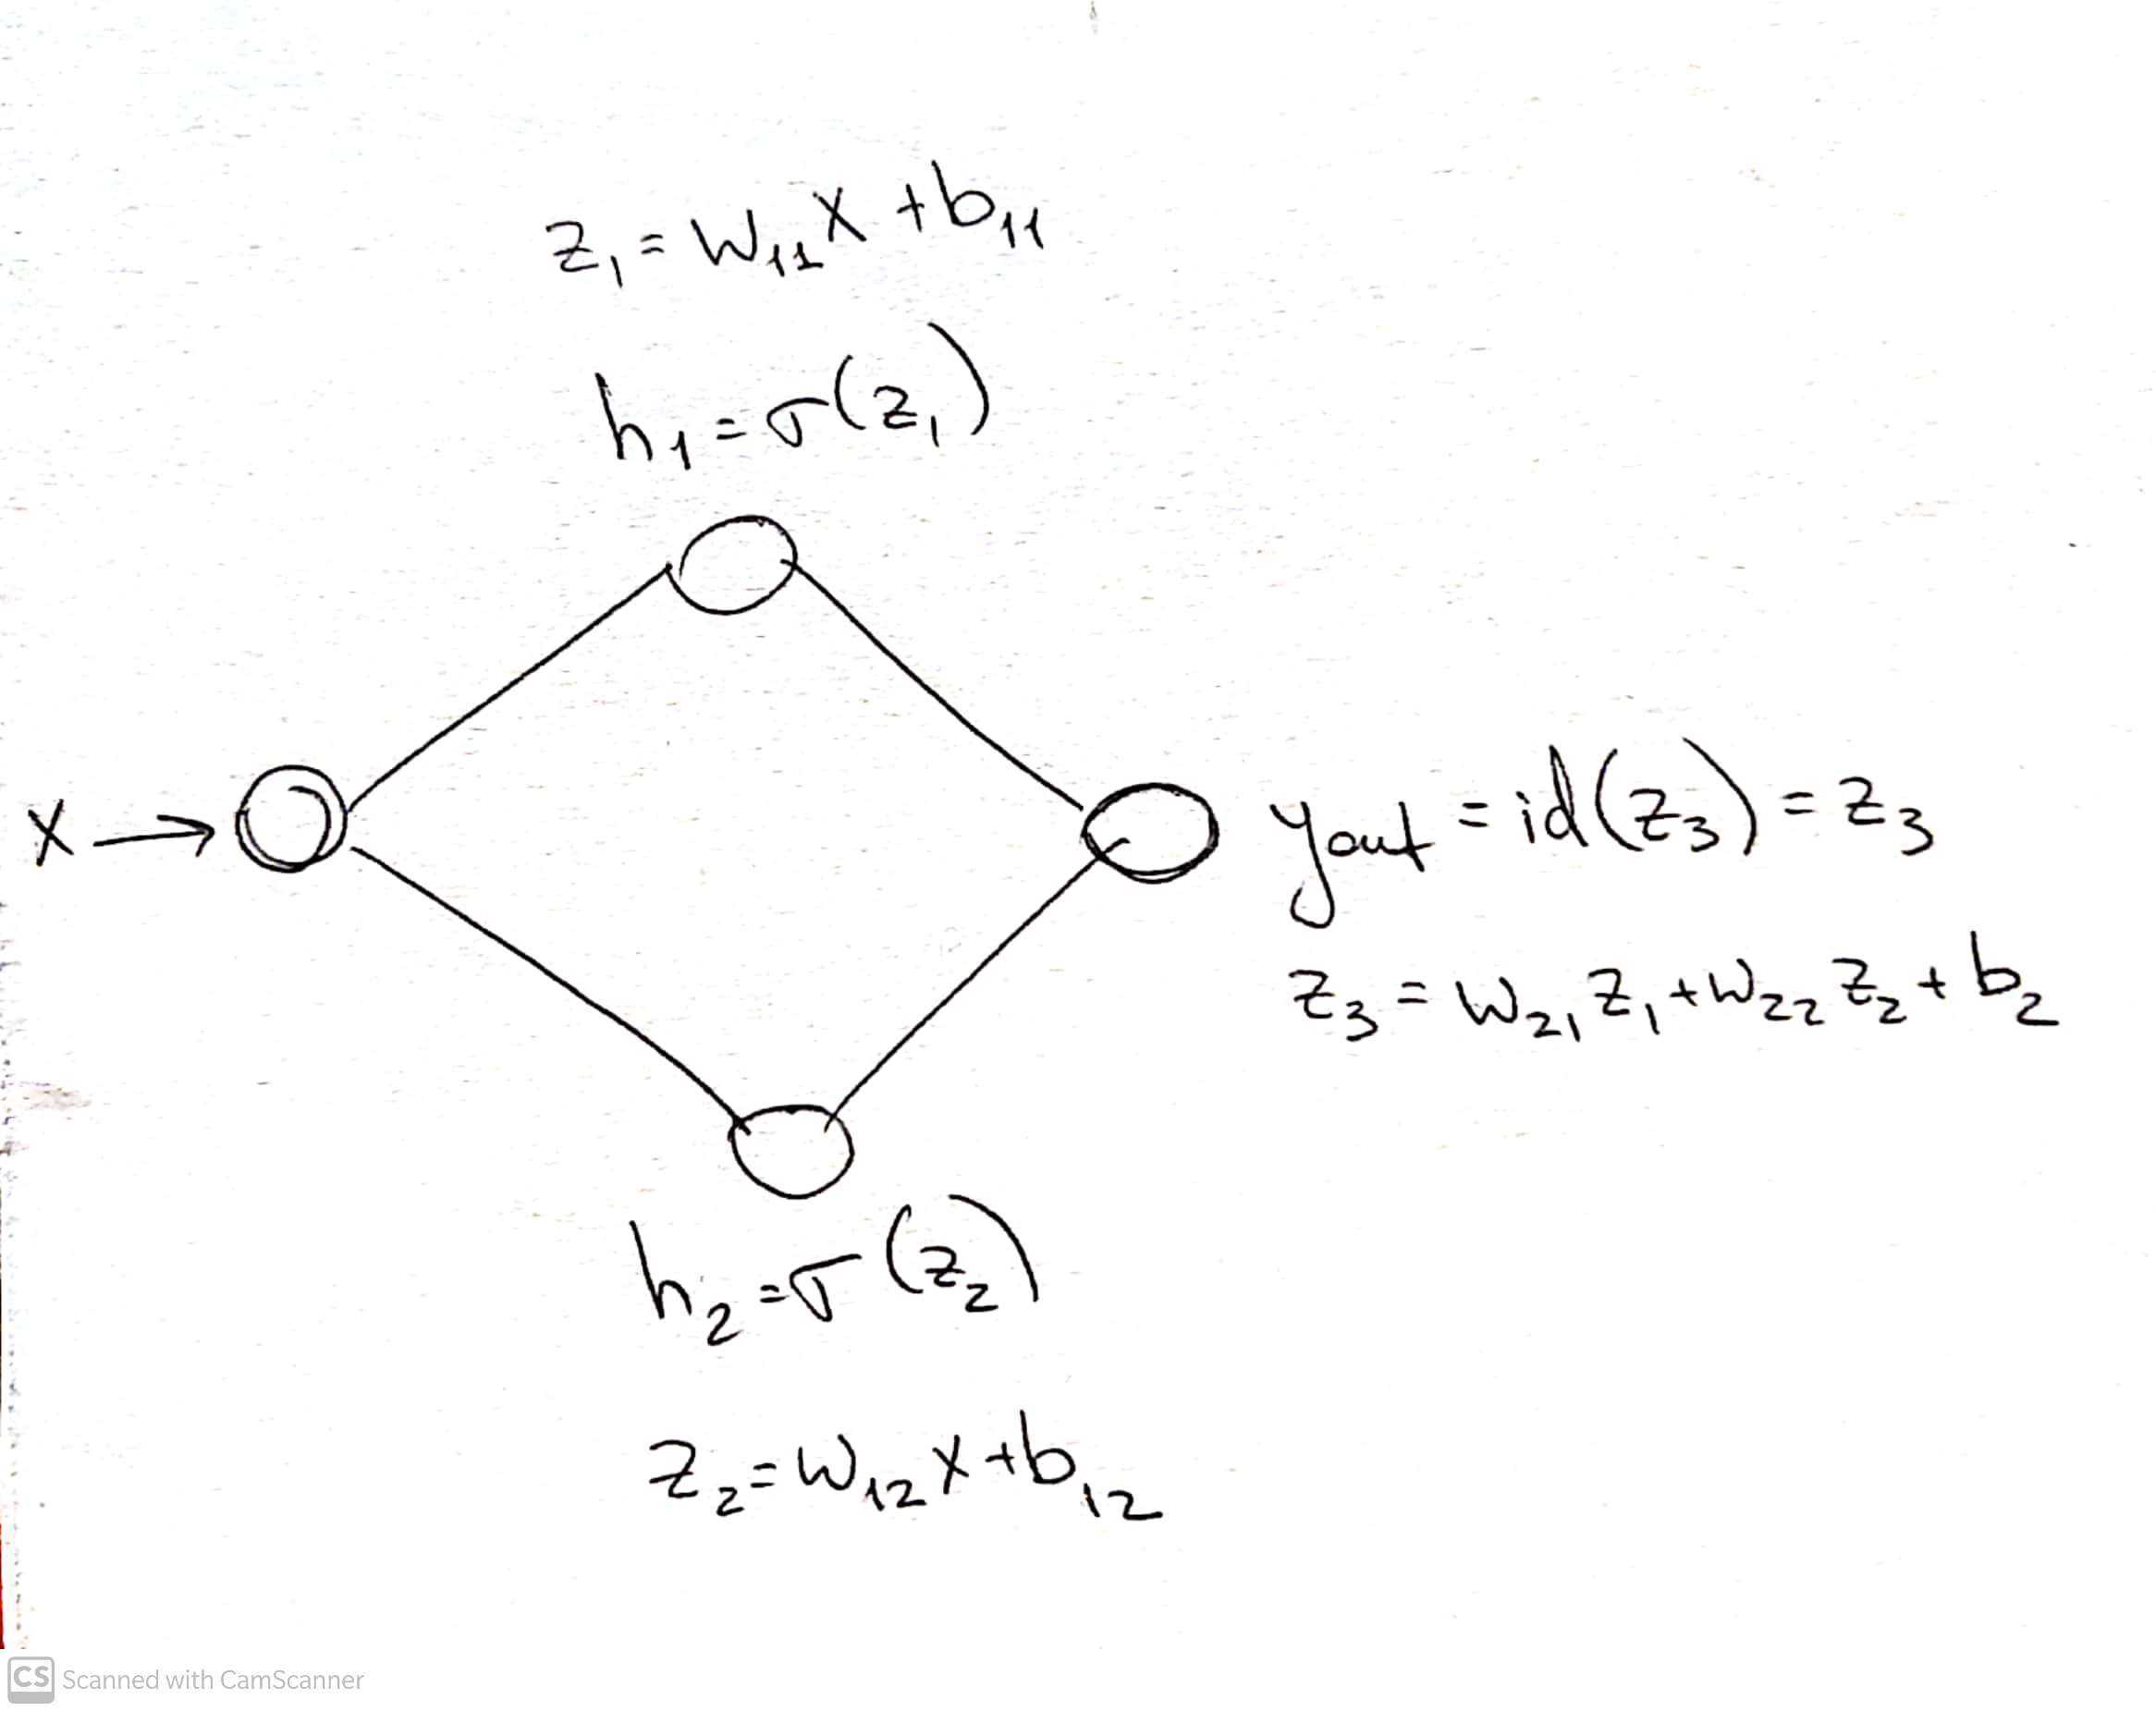 z₁ = W₁₁x + b₁₁
h₁ = σ(z₁)
x →
yout = id(z₃) = z₃
z₃ = W₂₁z₁ + W₂₂z₂ + b₂
h₂ = σ(z₂)
z₂ = W₁₂x + b₁₂
CS Scanned with CamScanner